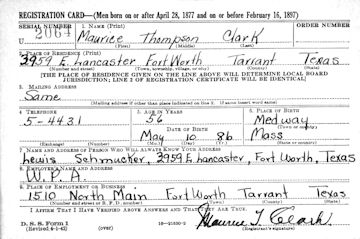 REGISTRATION CARD—(Men born on or after April 28, 1877 and on or before February 16, 1897)
SERIAL NUMBER 1. NAME (Print) ORDER NUMBER
U 2064 Maurice Thompson Clark
(First) (Middle) (Last)
2. PLACE OF RESIDENCE (Print)
3959 E. Lancaster Fort Worth Tarrant Texas
(Number and street) (Town, township, village, or city) (County) (State)
[THE PLACE OF RESIDENCE GIVEN ON THE LINE ABOVE WILL DETERMINE LOCAL BOARD
JURISDICTION; LINE 2 OF REGISTRATION CERTIFICATE WILL BE IDENTICAL]
3. MAILING ADDRESS
Same
(Mailing address if other than place indicated on line 2. If same insert word same)
4. TELEPHONE 5. AGE IN YEARS 6. PLACE OF BIRTH
5-4431 56 Medway
DATE OF BIRTH (Town or county)
May 10 86 Mass
(Exchange) (Number) (Mo.) (Day) (Yr.) (State or country)
7. NAME AND ADDRESS OF PERSON WHO WILL ALWAYS KNOW YOUR ADDRESS
Lewis Schmucher, 3959 E. Lancaster, Fort Worth, Texas
8. EMPLOYER'S NAME AND ADDRESS
W.P.A.
9. PLACE OF EMPLOYMENT OR BUSINESS
1510 North Main Fort Worth Tarrant Texas
(Number and street or R. F. D. number) (Town) (County) (State)
I AFFIRM THAT I HAVE VERIFIED ABOVE ANSWERS AND THAT THEY ARE TRUE.
D. S. S. Form 1
(Revised 4-1-42) (over) Maurice T. Clark.
(Registrant's signature)